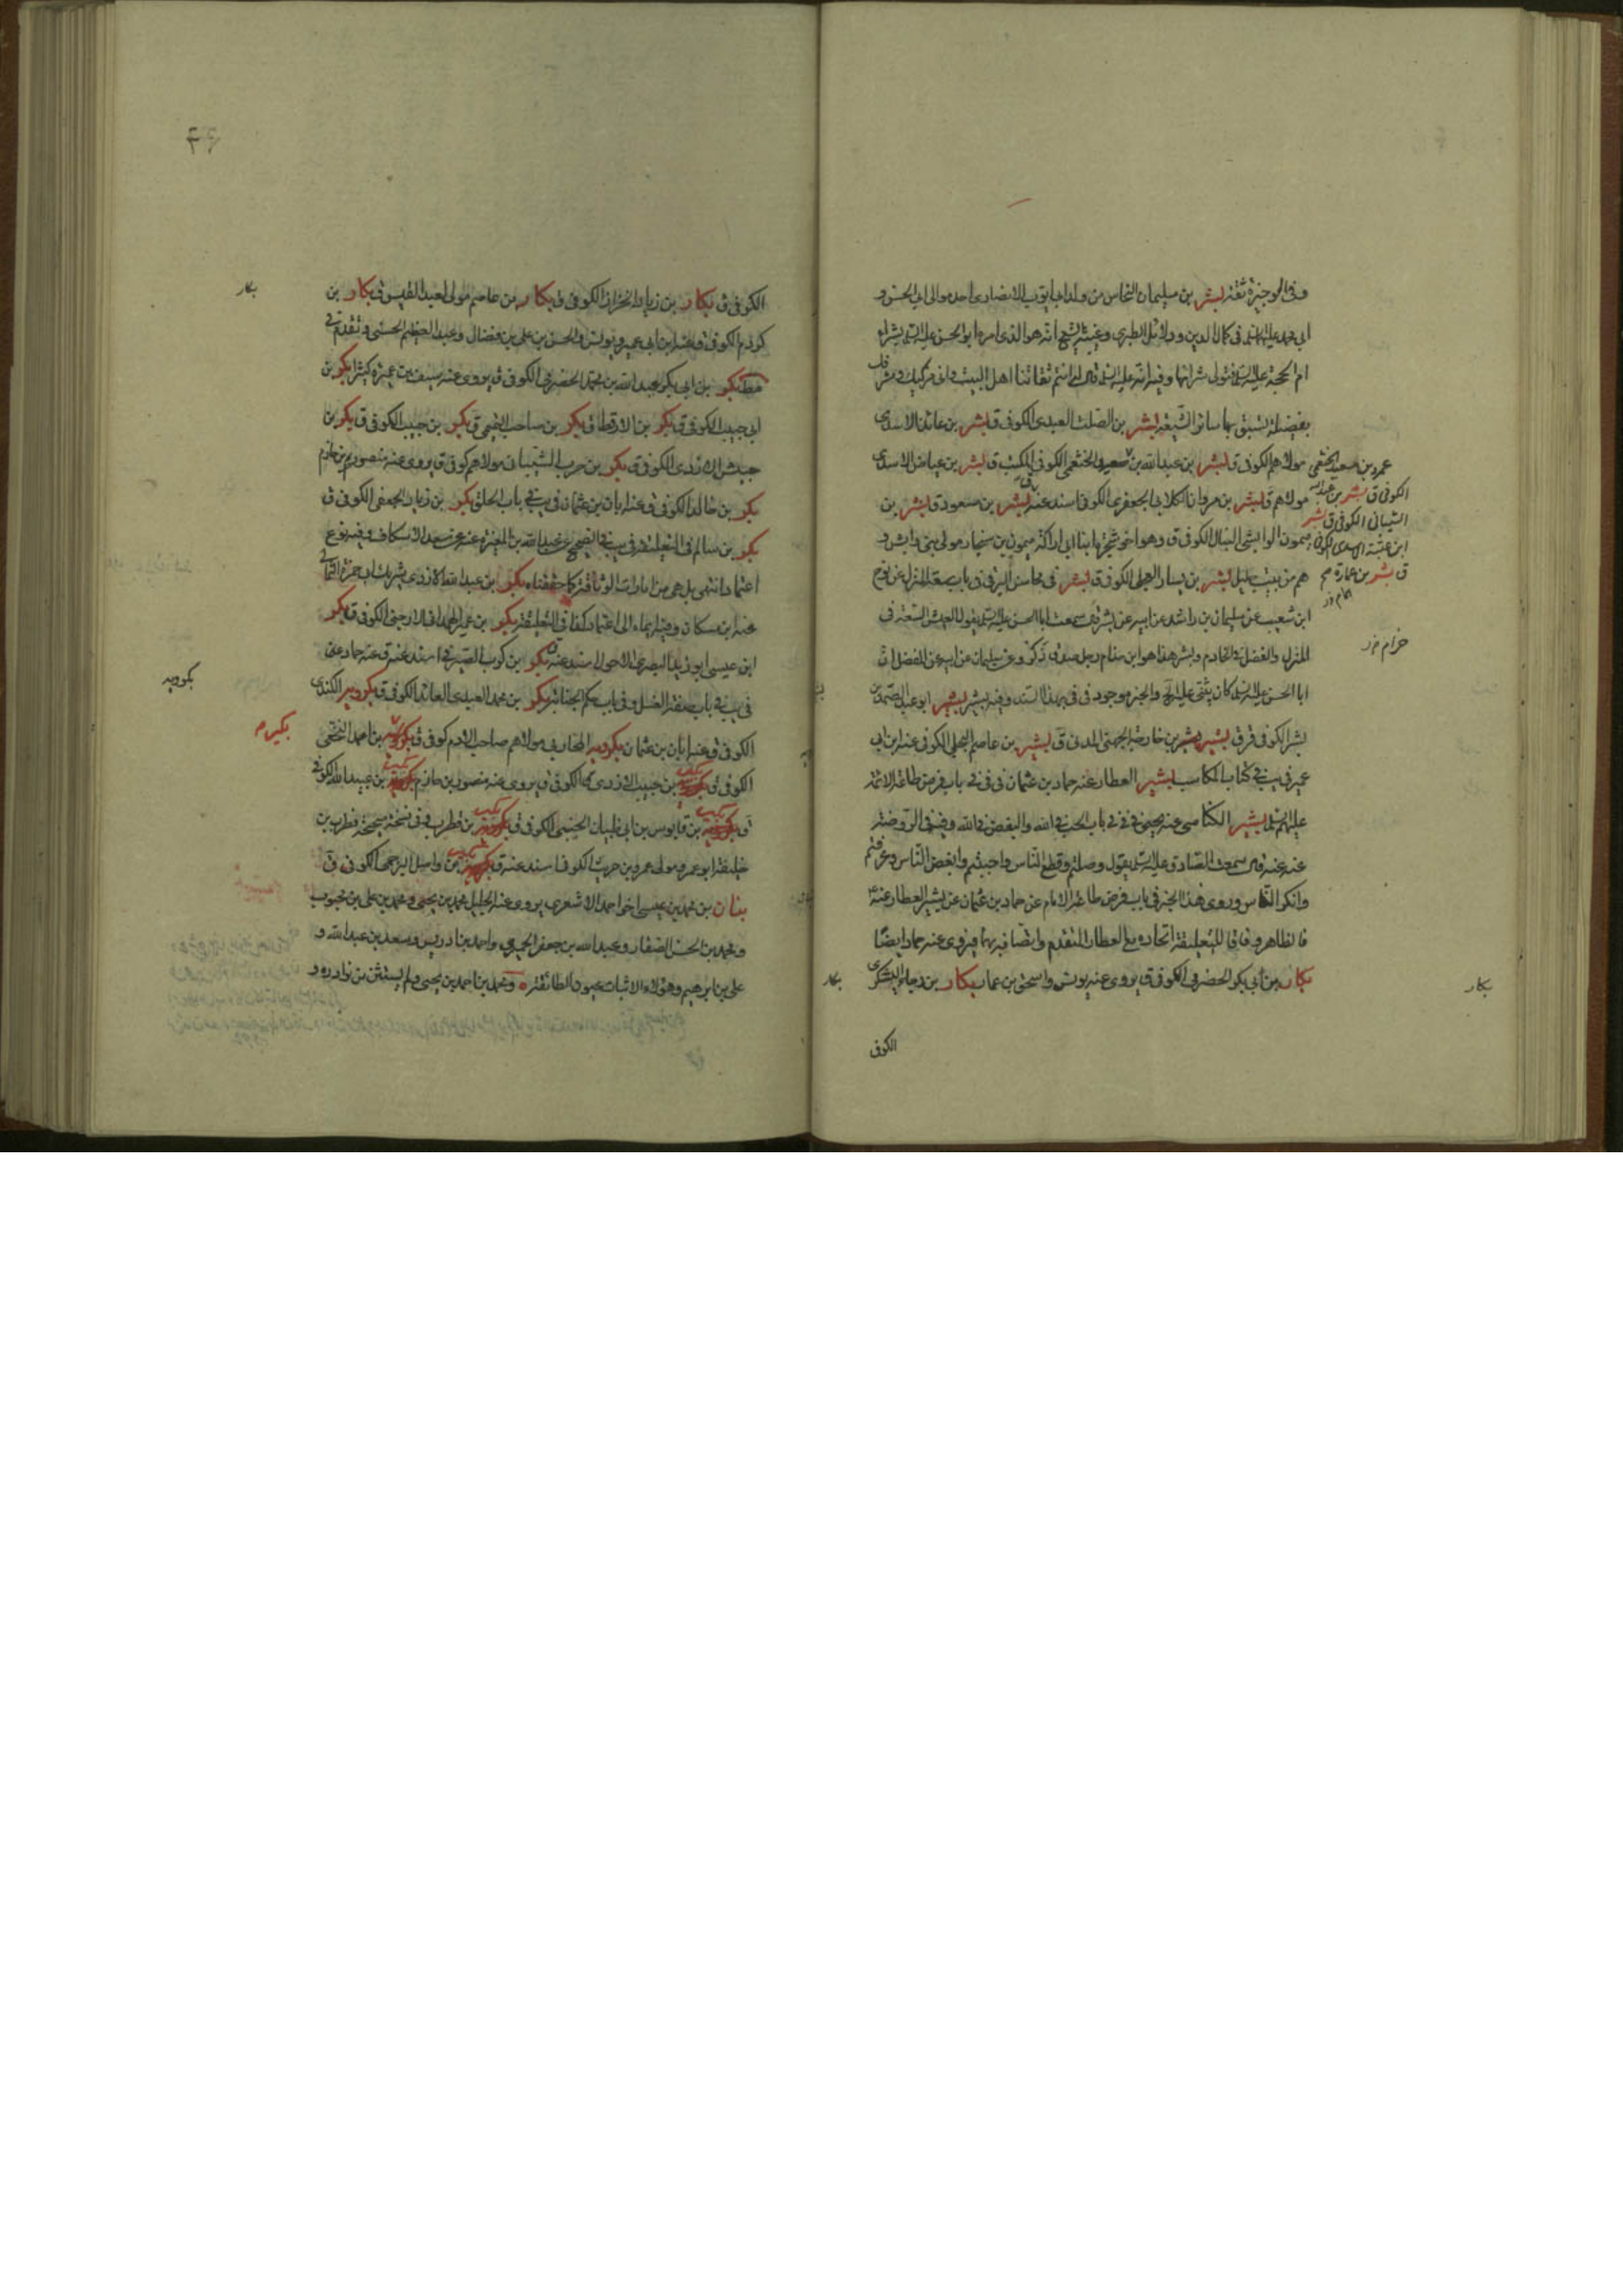 وفى الوجيزة ثقة بشر بن سليمان النخاس من ولد ابى ايوب الانصارى احد موالى ابى الحسن و
ابى محمد عليهما السلم فى كمال الدين ودلائل الطبرى وغيبة الشيخ انه هو الذى امره ابو الحسن عليه السلم بشراء
ام الحجة عليه السلم فتولى شرائها وفيه انه عليه السلم قال له انتم ثقاتنا اهل البيت وانى مزكيك ومشرفك
بفضيلة تسبق بها سائر الشيعة بشر بن الصلت العبدى الكوفى ق بشر بن عائذ الاسدى
مولاهم الكوفى ق بشر بن عبد الله بن سعيد الخثعمى الكوفى ق بشر بن عياض الاسدى
مولاهم ق بشر بن مروان الكلابى الجعفرى الكوفى اسند عنه بشر بن مسعود ق بشر بن
ميمون الوابشى النبال الكوفى ق وهو اخو شجرة ابنا ابى اراكة ميمون بن سنجار مولى بنى وابش و
هم من بيت جليل بشر بن يسار العجلى الكوفى ق بشر فى محاسن البرقى فى باب سعة المنزل عن نوح
ابن شعيب عن سليمان بن راشد عن ابيه عن بشر قال سمعت ابا الحسن عليه السلم يقول العيش السعة فى
المنزل والفضل فى الخادم وبشر هذا هو ابن رجل صدق ذكره وعن سليمان عن ابيه عن المفضل ان
ابا الحسن عليه السلم كان يثنى عليه والخبر موجود فى بهذا السند وفيه بشير بشير ابو عبد الصمد بن
بشر الكوفى قر ق بشير بن خارجة الجهنى المدنى ق بشير بن عاصم البجلى الكوفى عنه ابن ابى
عمير فى يب فى كتاب المكاسب بشير العطار عنه حماد بن عثمان فى فى باب فرض طاعة الائمة
عليهم السلم بشير الكناسى عنه يحيى فى فى باب الحب فى الله والبغض فى الله وفى الروضة
عنه عنه قال سمعت الصادق عليه السلم يقول وصلتم وقطع الناس واحببتم وابغض الناس وعرفتم
وانكر الناس وروى هذا الخبر فى باب فرض طاعة الامام عن حماد بن عثمان عن بشير العطار عنه
فالظاهر وفاقا للتعليقة اتحاده مع العطار المتقدم
بكار بن ابى بكر الحضرمى الكوفى ق يروى عنه يونس واسحق بن عمار بكار بن رجاء اليشكرى
الكوفى
عمرو بن سعيد الخثعمى
الكوفى ق بشر بن عبد الله
الشيبانى الكوفى ق بشر
ابن عتبة الاسدى الكوفى
ق بشر بن عمارة
بكار
بكار
الكوفى ق بكار بن زياد الخزاز الكوفى ق بكار بن عاصم مولى لعبد القيس ق بكار بن
كردم الكوفى ق عنه ابن ابى عمير ويونس والحسن بن على بن فضال وعبد العظيم الحسنى وتقدم فى
بكر بن ابى بكر عبد الله بن محمد الحضرمى الكوفى ق يروى عنه سيف بن عميرة كثيرا بكر بن
ابى حبيب الكوفى ق بكر بن الارقط ق بكر بن صاحب ق بكر بن حبيب الكوفى ق بكر بن
حبيش الازدى الكوفى ق بكر بن حرب الشيبانى مولاهم كوفى ق يروى عنه منصور بن حازم
بكر بن خالد الكوفى ق عنه ابان بن عثمان فى يب فى باب الحلق بكر بن زياد الجعفى الكوفى ق
بكر بن سالم فى التعليقة فى يب فى الصحيح عن عبد الله بن المغيرة عنه عن سعد الاسكاف وفيه نوع
اعتماد انتهى بل هى من امارات الوثاقة كما حققناه بكر بن عبد الله الازدى شريك ابى حمزة الثمالى
عنه ابن مسكان وفيه ايماء الى اعتماد كما فى التعليقة بكر بن عمير الهمدانى الارحبى الكوفى ق بكر
ابن عيسى ابو زيد البصرى الاحول اسند عنه ق بكر بن كرب الصيرفى اسند عنه ق عنه حماد
فى يب فى باب صفة الغسل وفى باب حكم الجنابة بكر بن محمد العبدى العائذ الكوفى ق بكرويه الكندى
الكوفى ق عنه ابان بن عثمان بكرويه المحاربى مولاهم صاحب الادم كوفى ق بكير بن احمد النخعى
الكوفى ق بكير بن حبيب الازدى الكوفى ق يروى عنه منصور بن حازم بكير بن عبيد الله الكوفى
ق بكير بن قابوس بن ابى ظبيان الجنبى الكوفى ق بكير بن قطرب وفى نسخة صحيحة فطر بن
خليفة ابو عمرو مولى عمرو بن حريث الكوفى اسند عنه ق بكير بن واصل البرجمى الكوفى ق
بنان بن محمد بن عيسى اخو احمد الاشعرى يروى عنه الجليل محمد بن يحيى ومحمد بن على بن محبوب
ومحمد بن الحسن الصفار وعبد الله بن جعفر الحميرى واحمد بن ادريس وسعد بن عبد الله و
على بن ابرهيم وهؤلاء الاثبات عيون الطائفة ومحمد بن احمد بن يحيى ولم يستثن من نوادره و
بكار
بكرويه
بكير